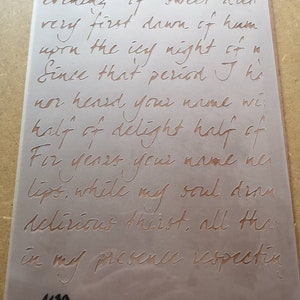 evening, of sweet
very first dawn of hum
upon the icy night of m
Since that period I ha
nor heard your name wi
half of delight half of
For years your name nev
lips, while my soul dran
delirious thirst, all tha
in my presence respectin